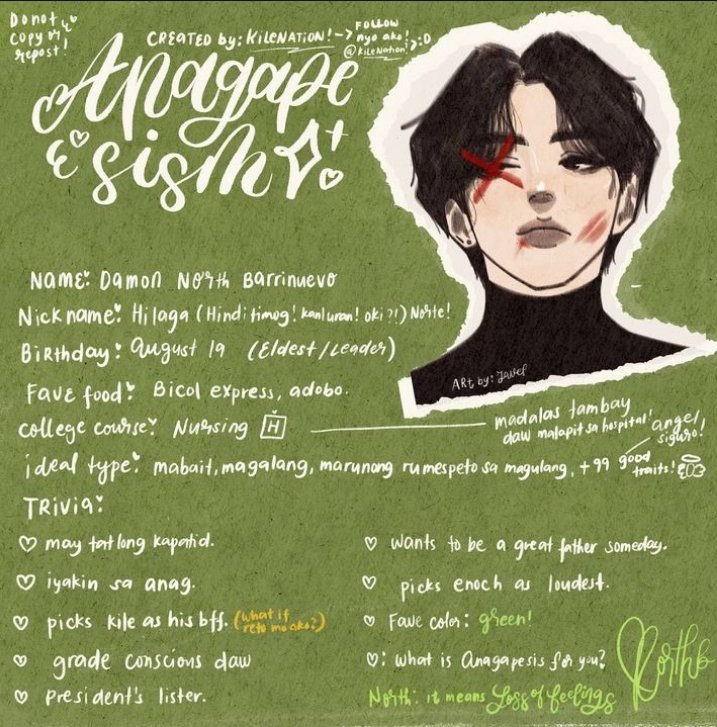 Do not
copy or
repost!
CREATED by: KILENATION! -> FOLLOW
nyo ako!
@kilenation! >:D
Anagape
sism
NAME: Damon North Barrinuevo
Nickname: Hilaga (Hindi timog! kanluran! oki ?!) Norte!
Birthday: August 19 (Eldest/Leader)
Fave food: Bicol express, adobo.
College course: Nursing H
madalas tambay
daw malapit sa hospital! angel
siguro!
ideal type: mabait, magalang, marunong rumespeto sa magulang, + 99 good
traits!
ARt by: Javel
TRivia:
may tatlong kapatid.
iyakin sa anag.
picks kile as his bff. (what if
reto mo ako?)
grade conscious daw
President's lister.
wants to be a great father someday.
picks enoch as loudest.
Fave color: green!
: what is Anagapesis for you?
North: it means Loss of feelings
North